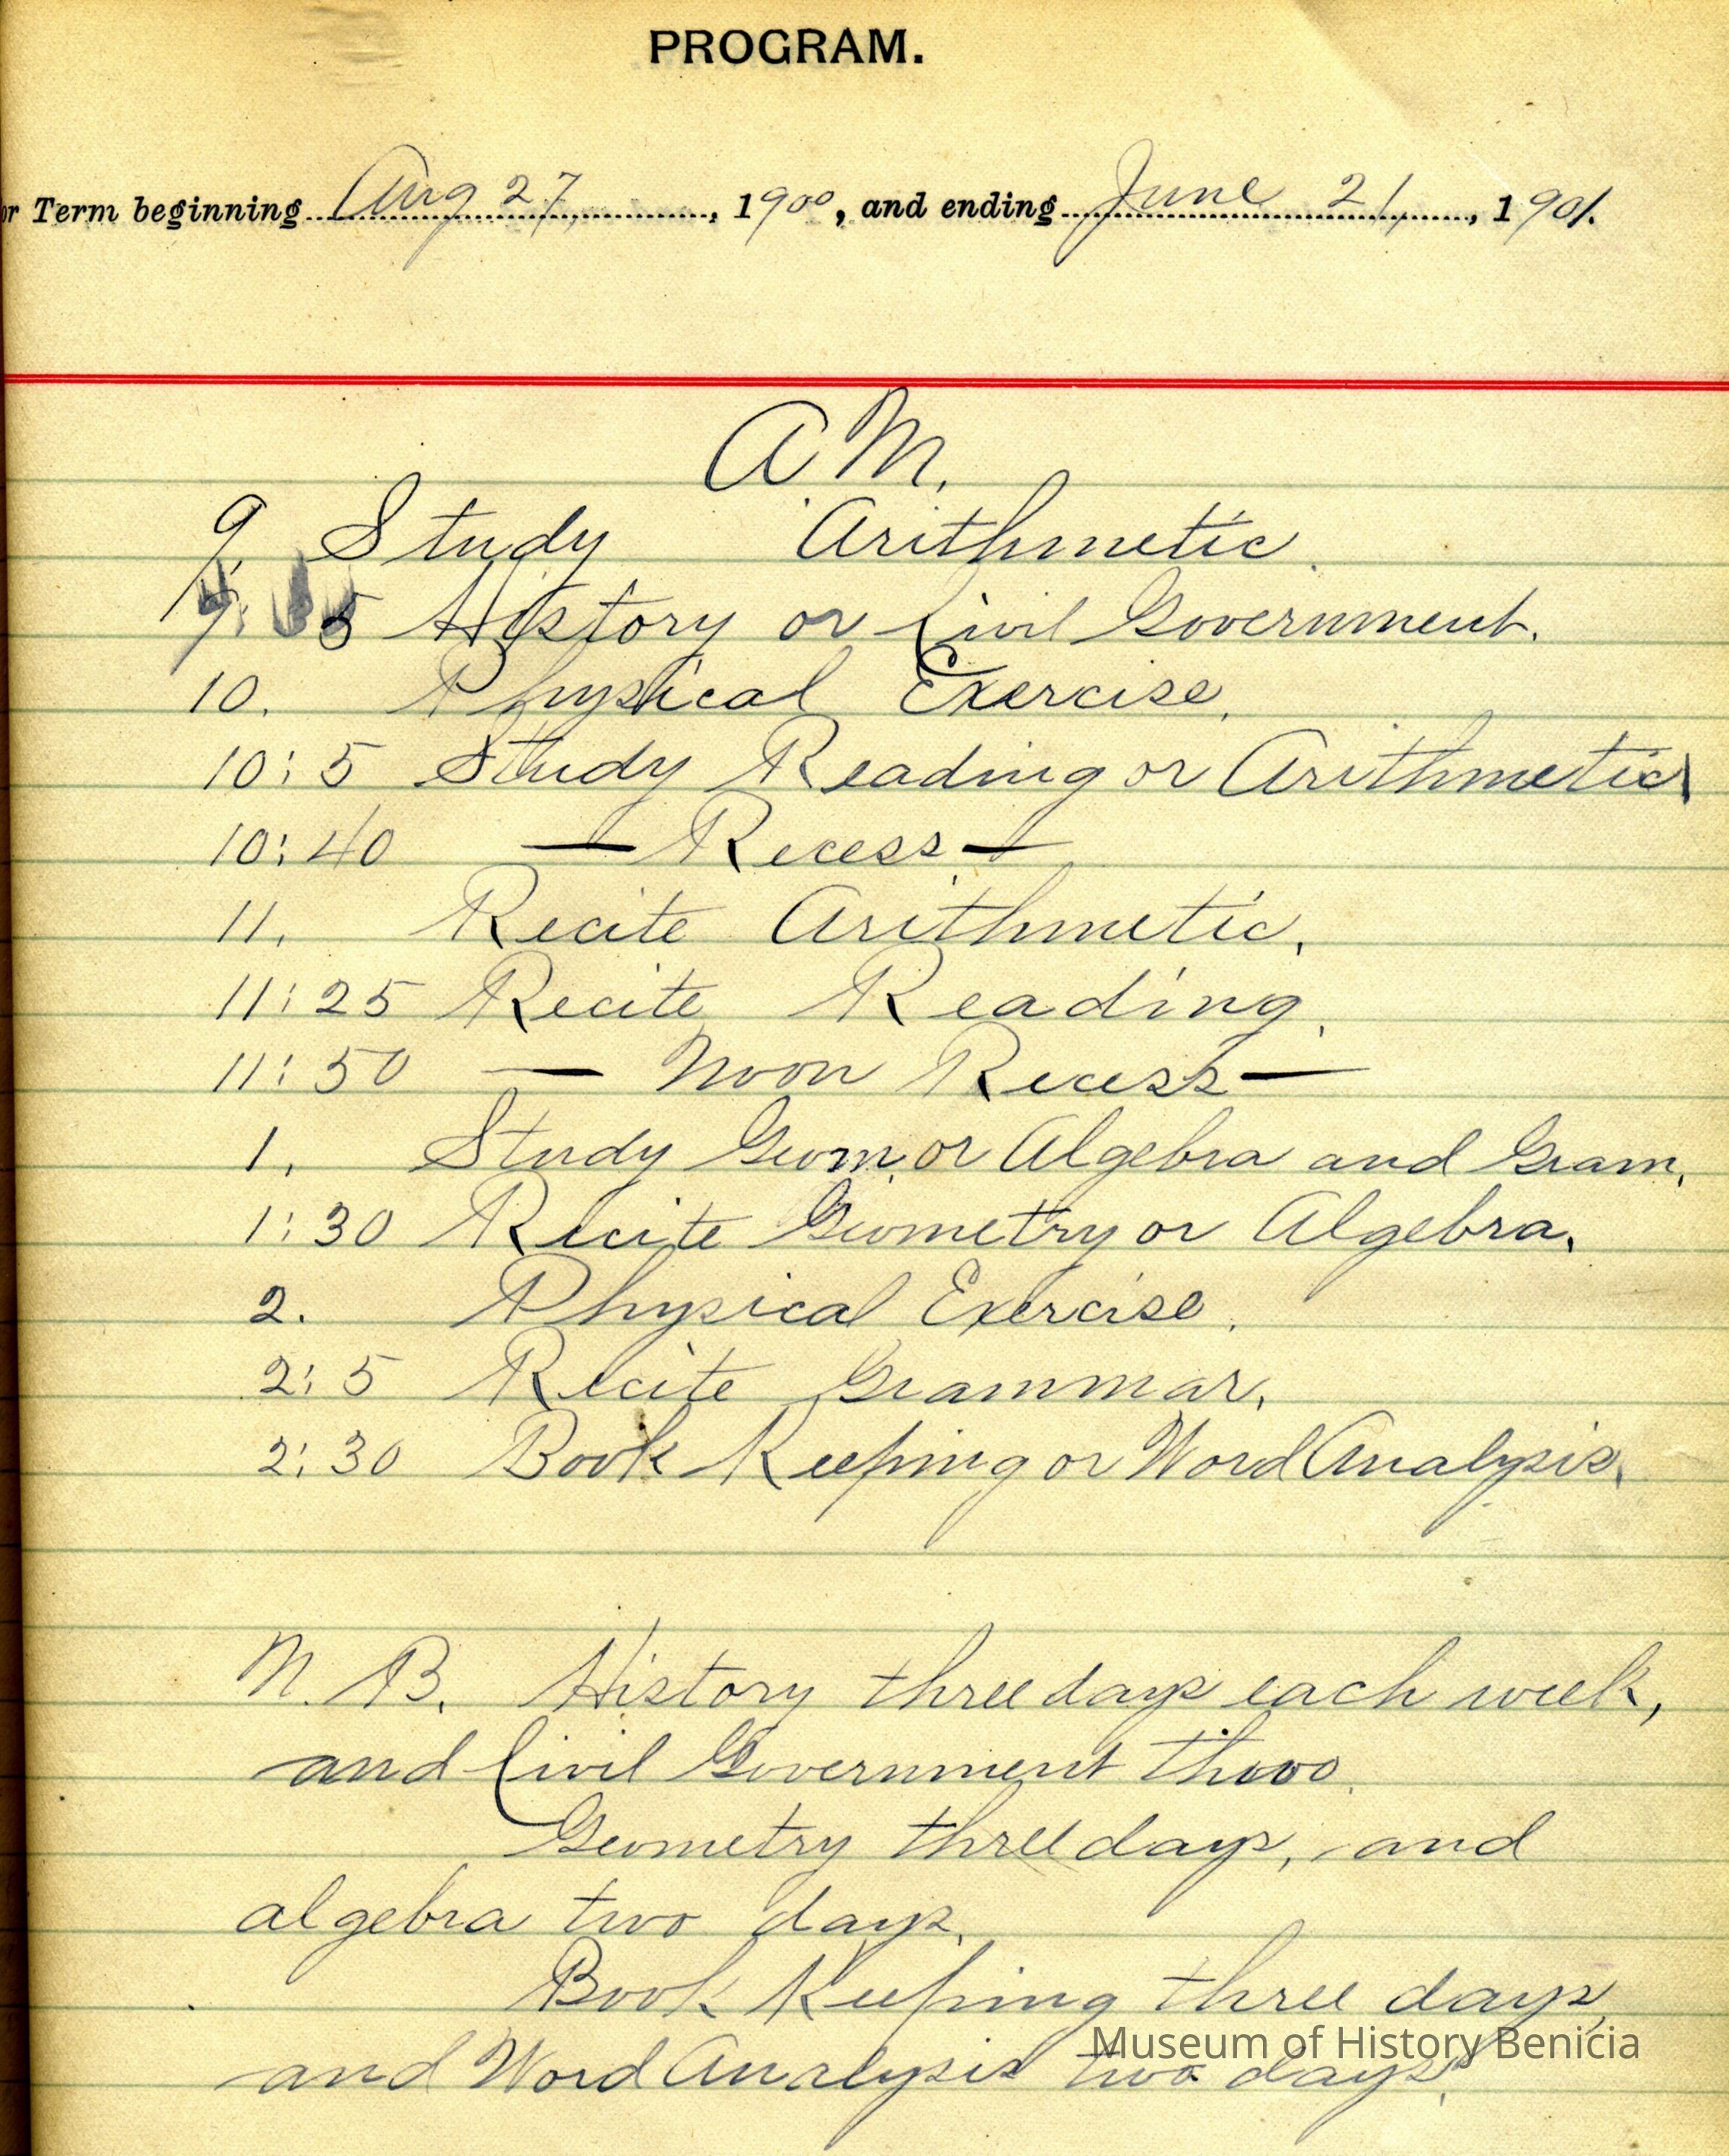 PROGRAM.
or Term beginning Aug 27, 1900, and ending June 21, 1901.
A M.
9. Study Arithmetic.
History or Civil Government.
10. Physical Exercise.
10:5 Study Reading or Arithmetic
10:40 — Recess —
11. Recite Arithmetic.
11:25 Recite Reading.
11:50 — Noon Recess —
1. Study Geom. or Algebra and Gram.
1:30 Recite Geometry or Algebra.
2. Physical Exercise.
2:5 Recite Grammar.
2:30 Book Keeping or Word Analysis.
N. B. History three days each week,
and Civil Government
Geometry three days, and
algebra two days.
Book Keeping three days,
and Word Analysis two days.
Museum of History Benicia